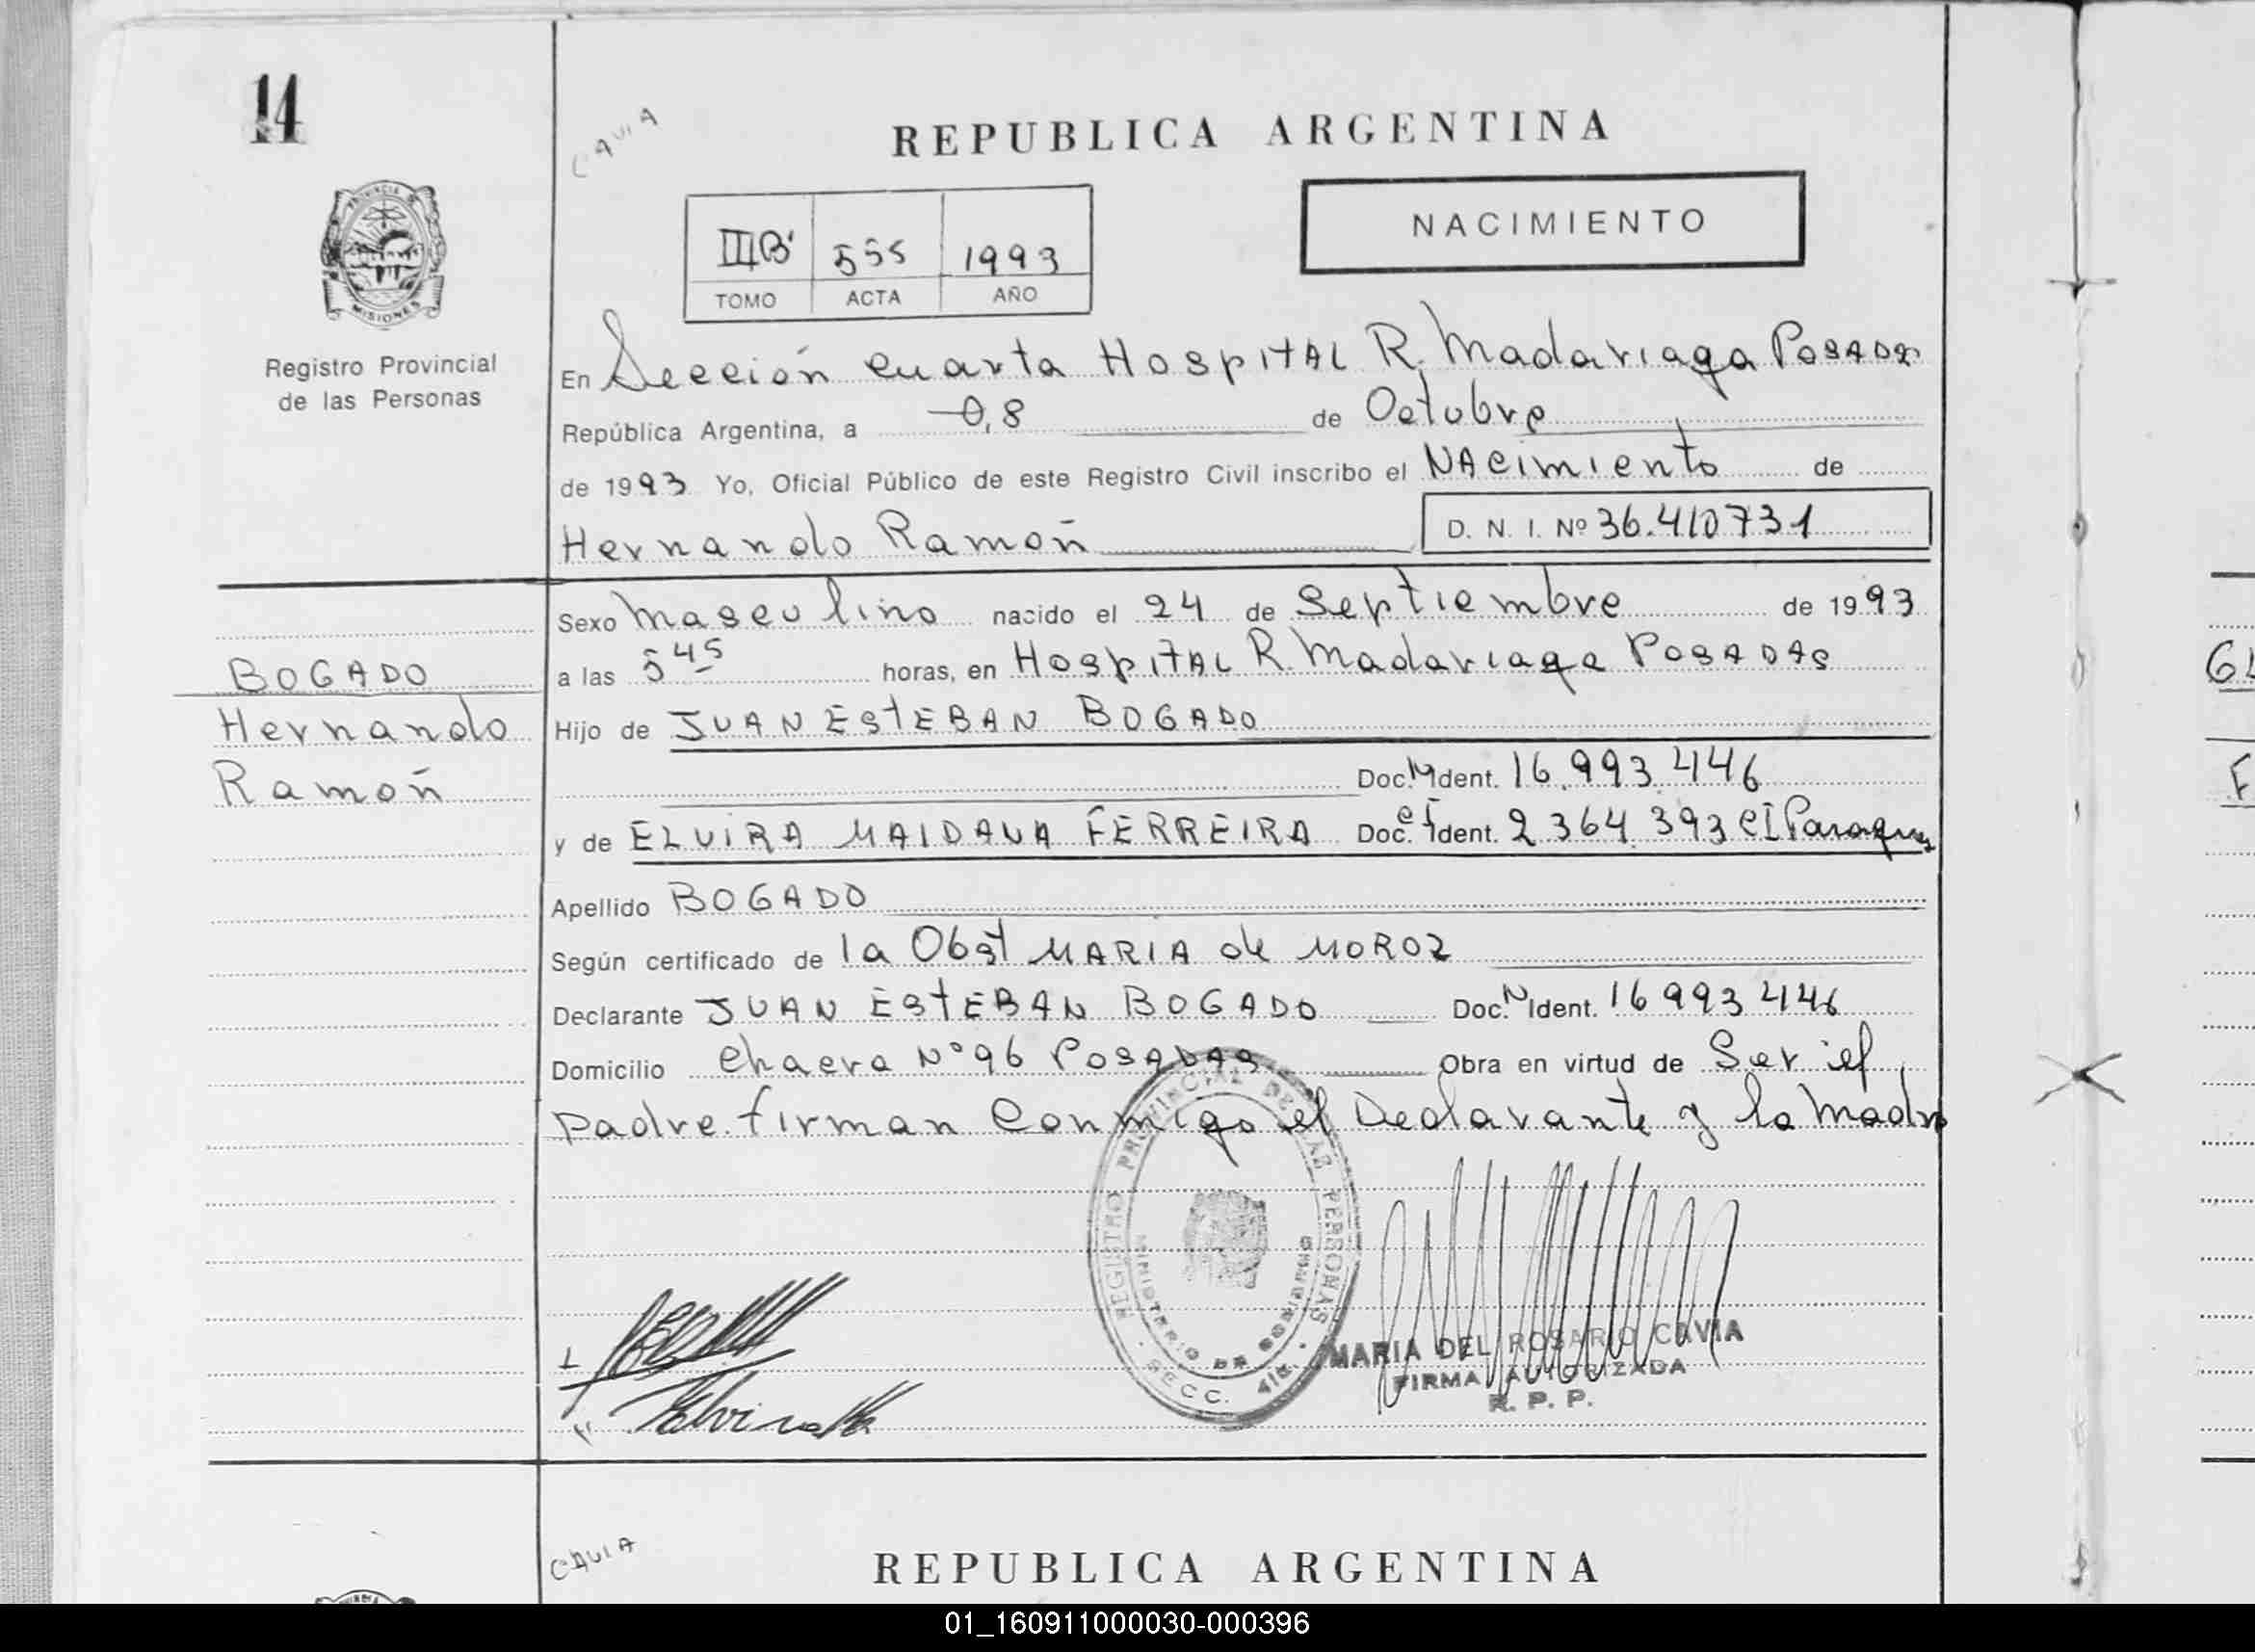 14
CAVIA
REPUBLICA ARGENTINA
PROVINCIA DE
MISIONES
Registro Provincial
de las Personas
NACIMIENTO
III B' 555 1993
TOMO ACTA AÑO
En Sección cuarta HospitAL R. Madariaga POSADAS
República Argentina, a 0,8 de Octubre
de 1993 Yo, Oficial Público de este Registro Civil inscribo el NAcimiento de
Hernando Ramón D. N. I. Nº 36.410731
BOGADO
Hernando
Ramón
Sexo masculino nacido el 24 de Septiembre de 1993
a las 5 45 horas, en HospitAL R. Madariaga POSADAS
Hijo de JUAN ESTEBAN BOGADO
Doc. Ident. 16.993.446
y de ELVIRA MAIDANA FERREIRA Doc. Ident. 2364.393 CI
Apellido BOGADO
Según certificado de la Obst MARIA de MOROZ
Declarante JUAN ESTEBAN BOGADO Doc. N Ident. 16993446
Domicilio chacra Nº 96 POSADAS Obra en virtud de Ser el
padre. firman conmigo el Declarante y la madre
REGISTRO PROVINCIAL DE LAS PERSONAS
MINISTERIO DE GOBIERNO
SECC. 4ta.
MARIA DEL ROSARIO CAVIA
FIRMA AUTORIZADA
R. P. P.
CAVIA
REPUBLICA ARGENTINA
01_160911000030-000396